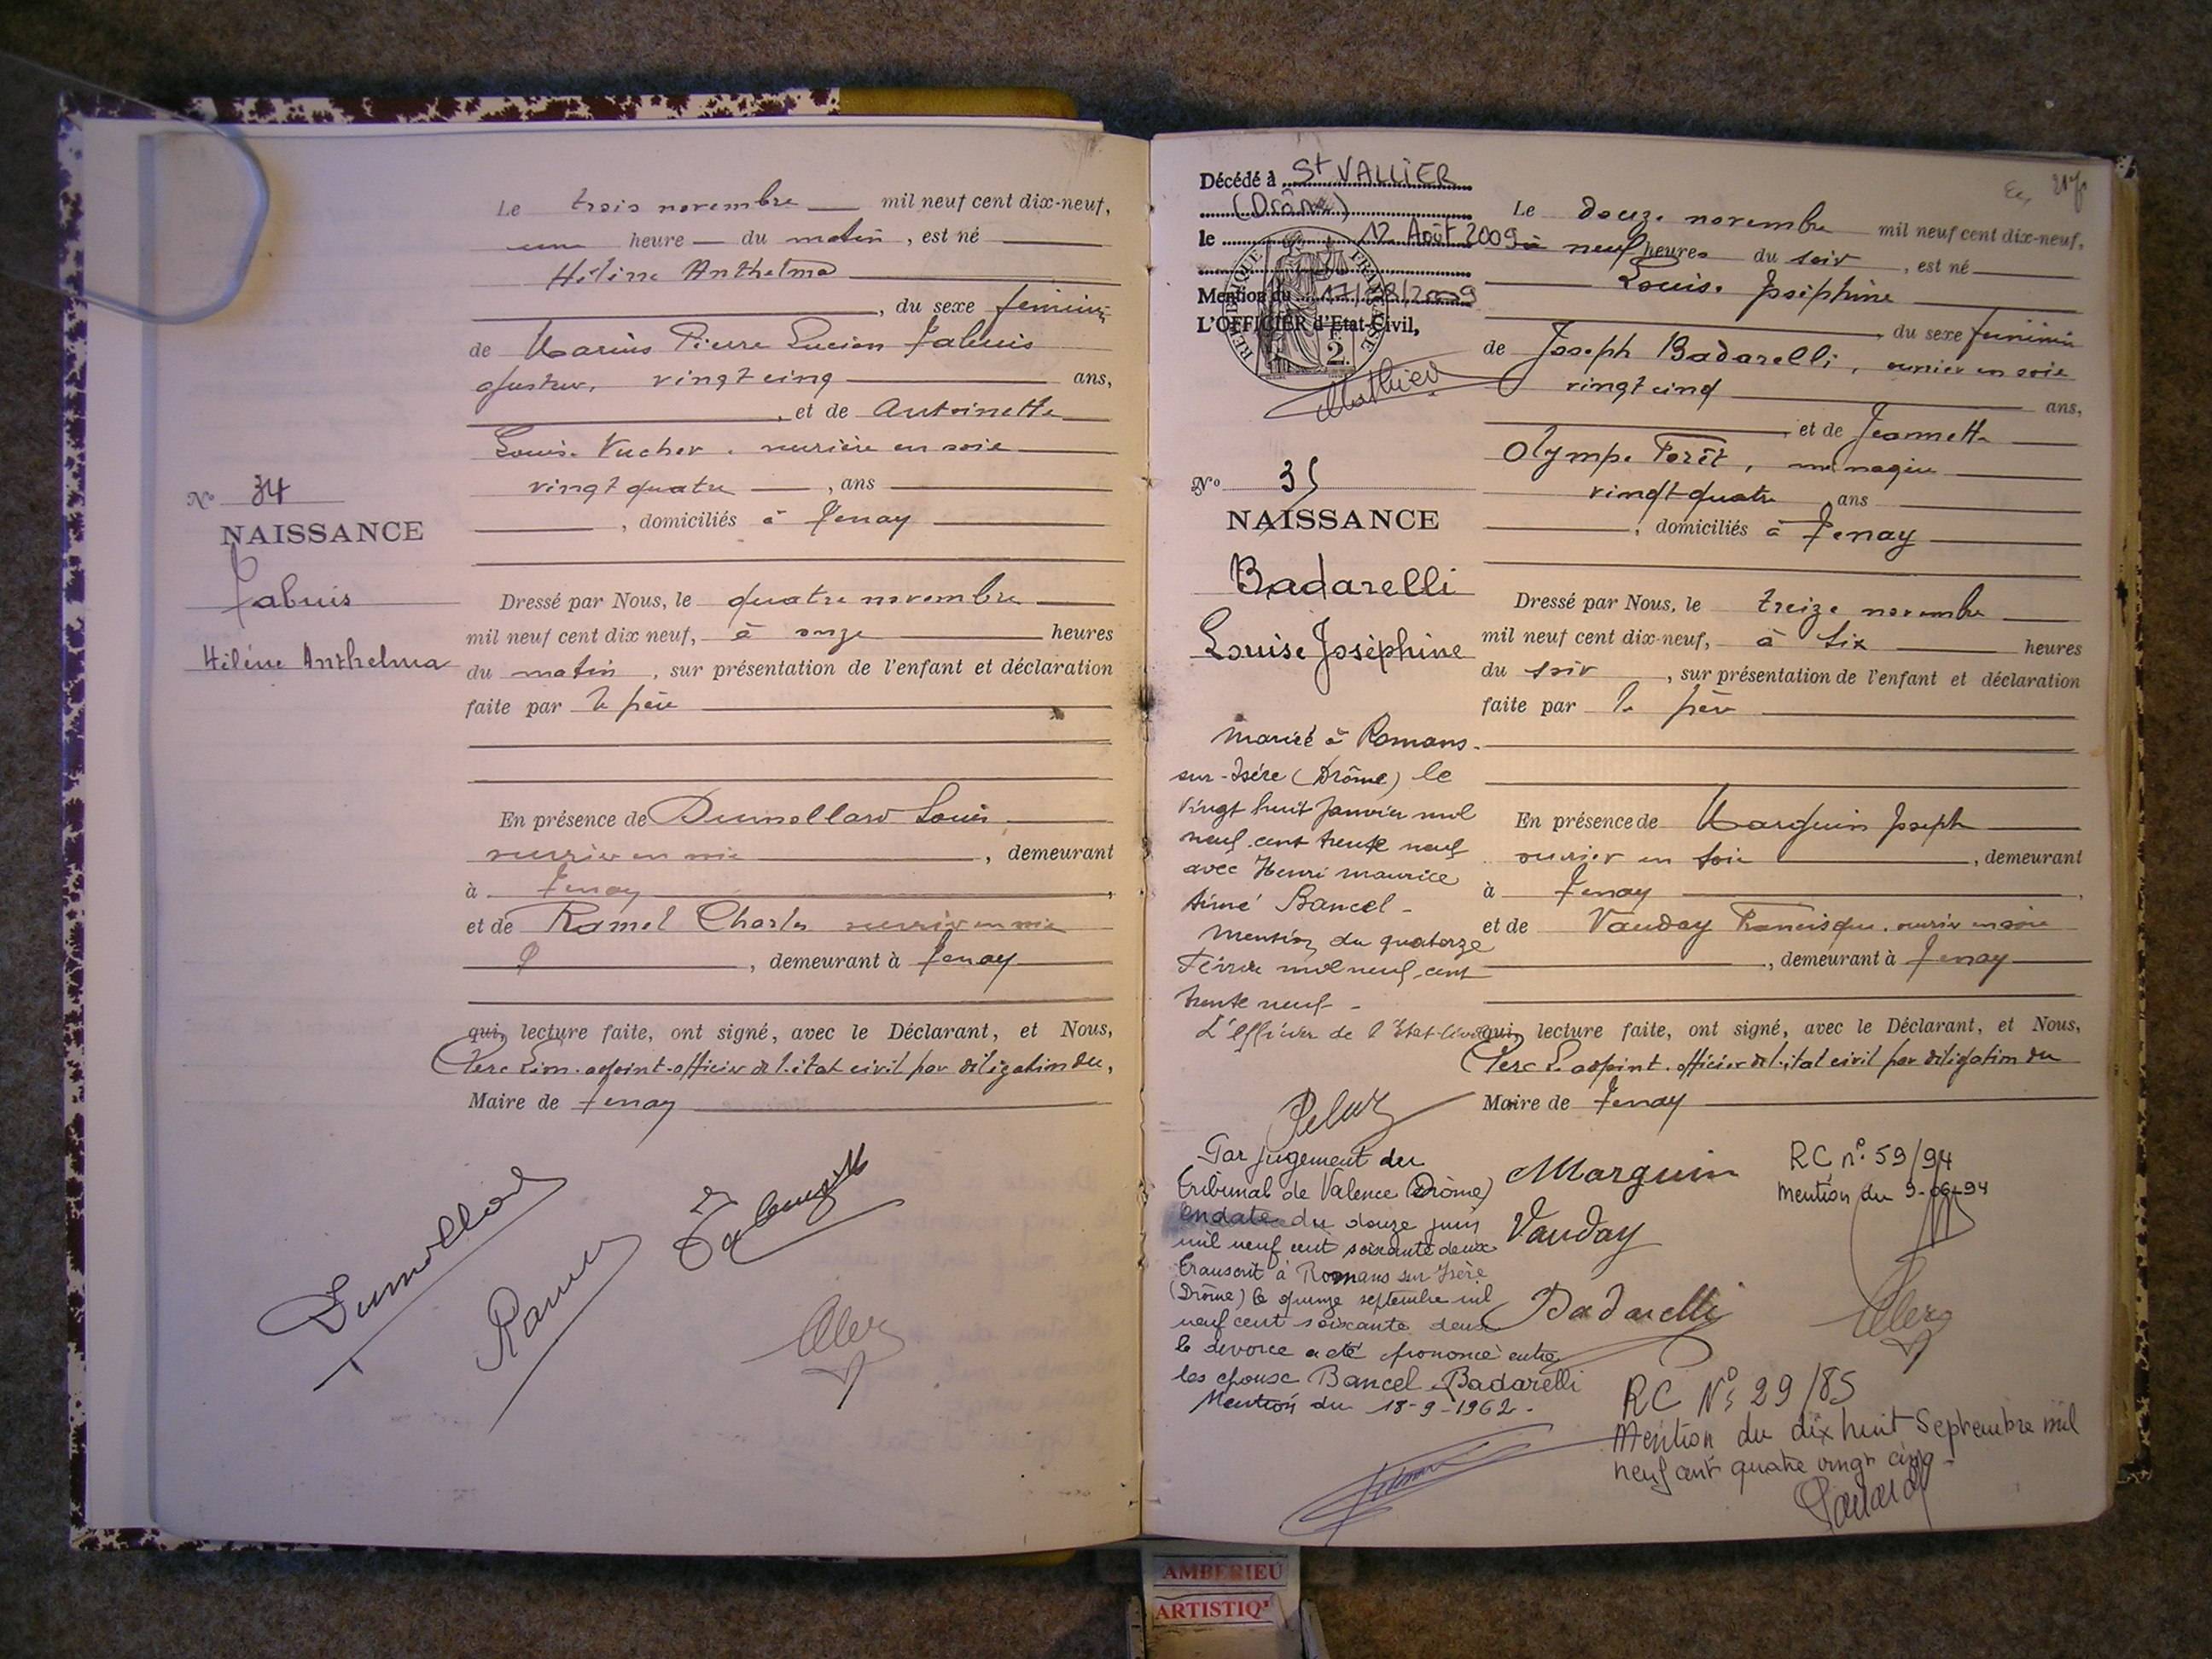 Le trois novembre mil neuf cent dix-neuf,
une heure du matin, est né
Hélène Anthelma
, du sexe feminin
de Marius Pierre Lucien Tabuis
ajusteur, vingt cinq ans,
, et de Antoinette
Louise Vucher, ouvrière en soie
vingt quatre, ans
, domiciliés à Tenay
No 34
NAISSANCE
Tabuis
Hélène Anthelma
Dressé par Nous, le quatre novembre
mil neuf cent dix neuf, à onze heures
du matin, sur présentation de l'enfant et déclaration
faite par le père
En présence de Dumollard Louis
ouvrier en soie, demeurant
à Tenay,
et de Ramel Charles ouvrier en soie
, demeurant à Tenay
qui, lecture faite, ont signé, avec le Déclarant, et Nous,
Clerc Léon. adjoint. officier de l'état civil par délégation du,
Maire de Tenay
Dumollard
Clerc
Décédé à St VALLIER
(Drôme)
le 12 Août 2009
Mention du 17/08/2009
L'OFFICIER d'Etat-Civil,
RÉPUBLIQUE FRANÇAISE
2
Mathieu
No 35
NAISSANCE
Badarelli
Louise Joséphine
mariée à Romans-
sur-Isère (Drôme) le
vingt huit janvier mil
neuf cent trente neuf
avec Henri Maurice
Aimé Bancel -
Mention du quatorze
Février mil neuf cent
trente neuf -
L'Officier de l'Etat-Civil
Par jugement du
tribunal de Valence (Drôme)
en date du douze juin
mil neuf cent soixante deux
transcrit à Romans sur Isère
(Drôme) le quinze septembre mil
neuf cent soixante deux
le divorce a été prononcé entre
les épouse Bancel - Badarelli
Mention du 18-9-1962.
Le douze novembre mil neuf cent dix-neuf,
à neuf heures du soir, est né
Louise Joséphine
, du sexe feminin
de Joseph Badarelli, ouvrier en soie
vingt cinq ans,
, et de Jeannette
Olympe Forêt, ménagère
vingt-quatre, ans
, domiciliés à Tenay
Dressé par Nous, le treize novembre
mil neuf cent dix-neuf, à six heures
du soir, sur présentation de l'enfant et déclaration
faite par le père
En présence de Marguin Joseph
ouvrier en soie, demeurant
à Tenay,
et de Vauday Francisque. ouvrier en soie
, demeurant à Tenay
qui, lecture faite, ont signé, avec le Déclarant, et Nous,
Clerc L. adjoint. officier de l'état civil par délégation du
Maire de Tenay
Marguin
Vauday
Badarelli
Clerc
RC n° 59/94
Mention du 9-06-94
RC N° 29/85
Mention du dix huit Septembre mil
neuf cent quatre vingt cinq -
AMBERIEU
ARTISTIQ